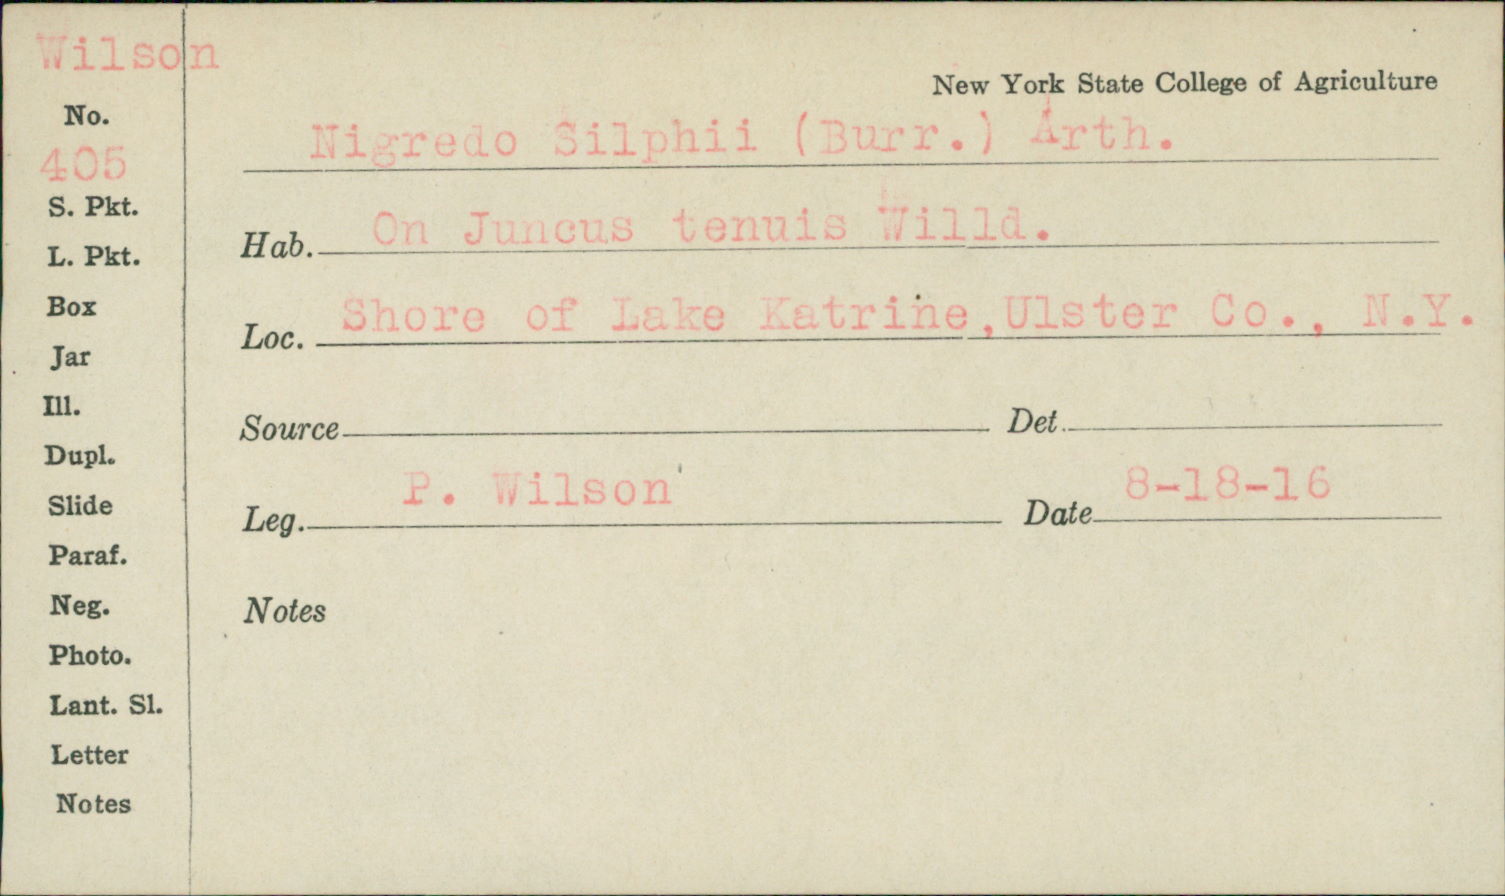 Wilson
New York State College of Agriculture
No.
Nigredo Silphii (Burr.) Arth.
405
S. Pkt.
Hab. On Juncus tenuis Willd.
L. Pkt.
Box
Loc. Shore of Lake Katrine,Ulster Co., N.Y.
Jar
Ill.
Source Det.
Dupl.
Slide
Leg. P. Wilson Date 8-18-16
Paraf.
Neg.
Notes
Photo.
Lant. Sl.
Letter
Notes